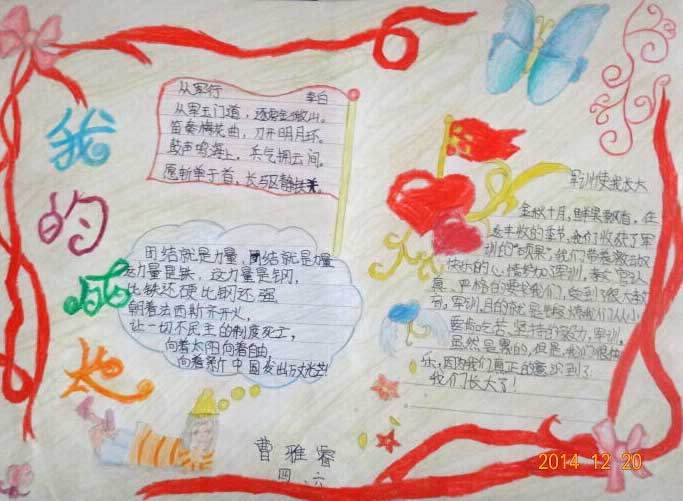 我的成长
从军行
李白
从军玉门道，逐虏金微山。
笛奏梅花曲，刀开明月环。
鼓声鸣海上，兵气拥云间。
愿斩单于首，长驱静铁关。
团结就是力量，团结就是力量
这力量是铁，这力量是钢，
比铁还硬比钢还强
朝着法西斯齐开火，
让一切不民主的制度死亡
向着太阳向着自由
向着新中国发出万丈光芒
曹雅睿
四、六
军训使我长大
金秋十月，鲜果飘香，在
这丰收的季节，我们收获了军
训的“硕果”，我们带着激动又
快乐的心情参加军训，教官认
真、严格的要求我们，
苟，军训目的就是锻炼我们从小
要肯吃苦，坚持的毅力，军训，
虽然是累的，但是，我们很快
乐，因为我们真正的意识到了：
我们长大了！
2014 12 20